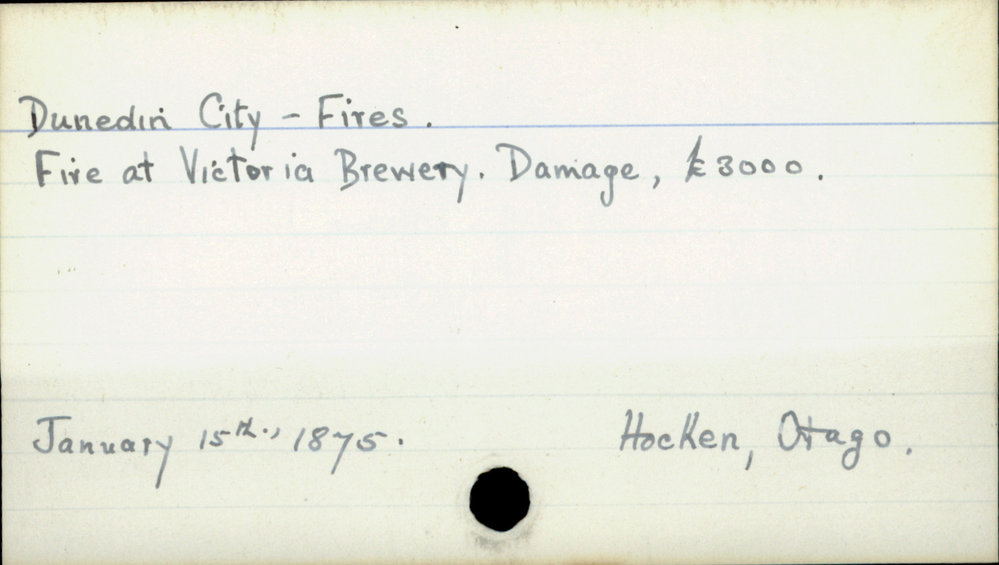 Dunedin City - Fires.
Fire at Victoria Brewery. Damage, £3000.
January 15th., 1875.
Hocken, Otago.